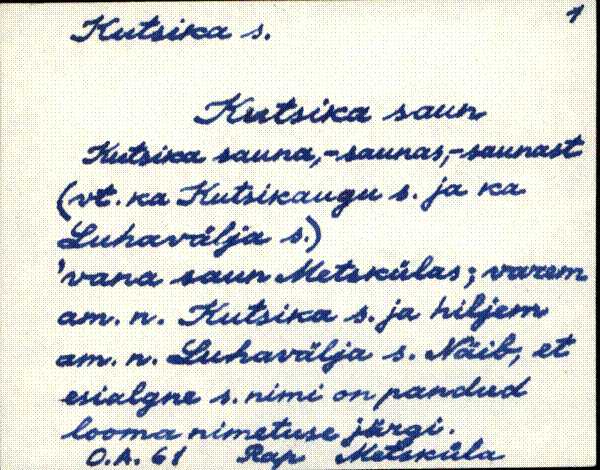 Kutsika s. 1
Kutsika saun
Kutsika sauna, -saunas, -saunast
(vt. ka Kutsikaugu s. ja ka
Luhavälja s.)
'vana saun Metskülas; varem
am. n. Kutsika s. ja hiljem
am. n. Luhavälja s. Näib, et
esialgne s. nimi on pandud
looma nimetuse järgi.
O.A. 61 Rap Metsküla